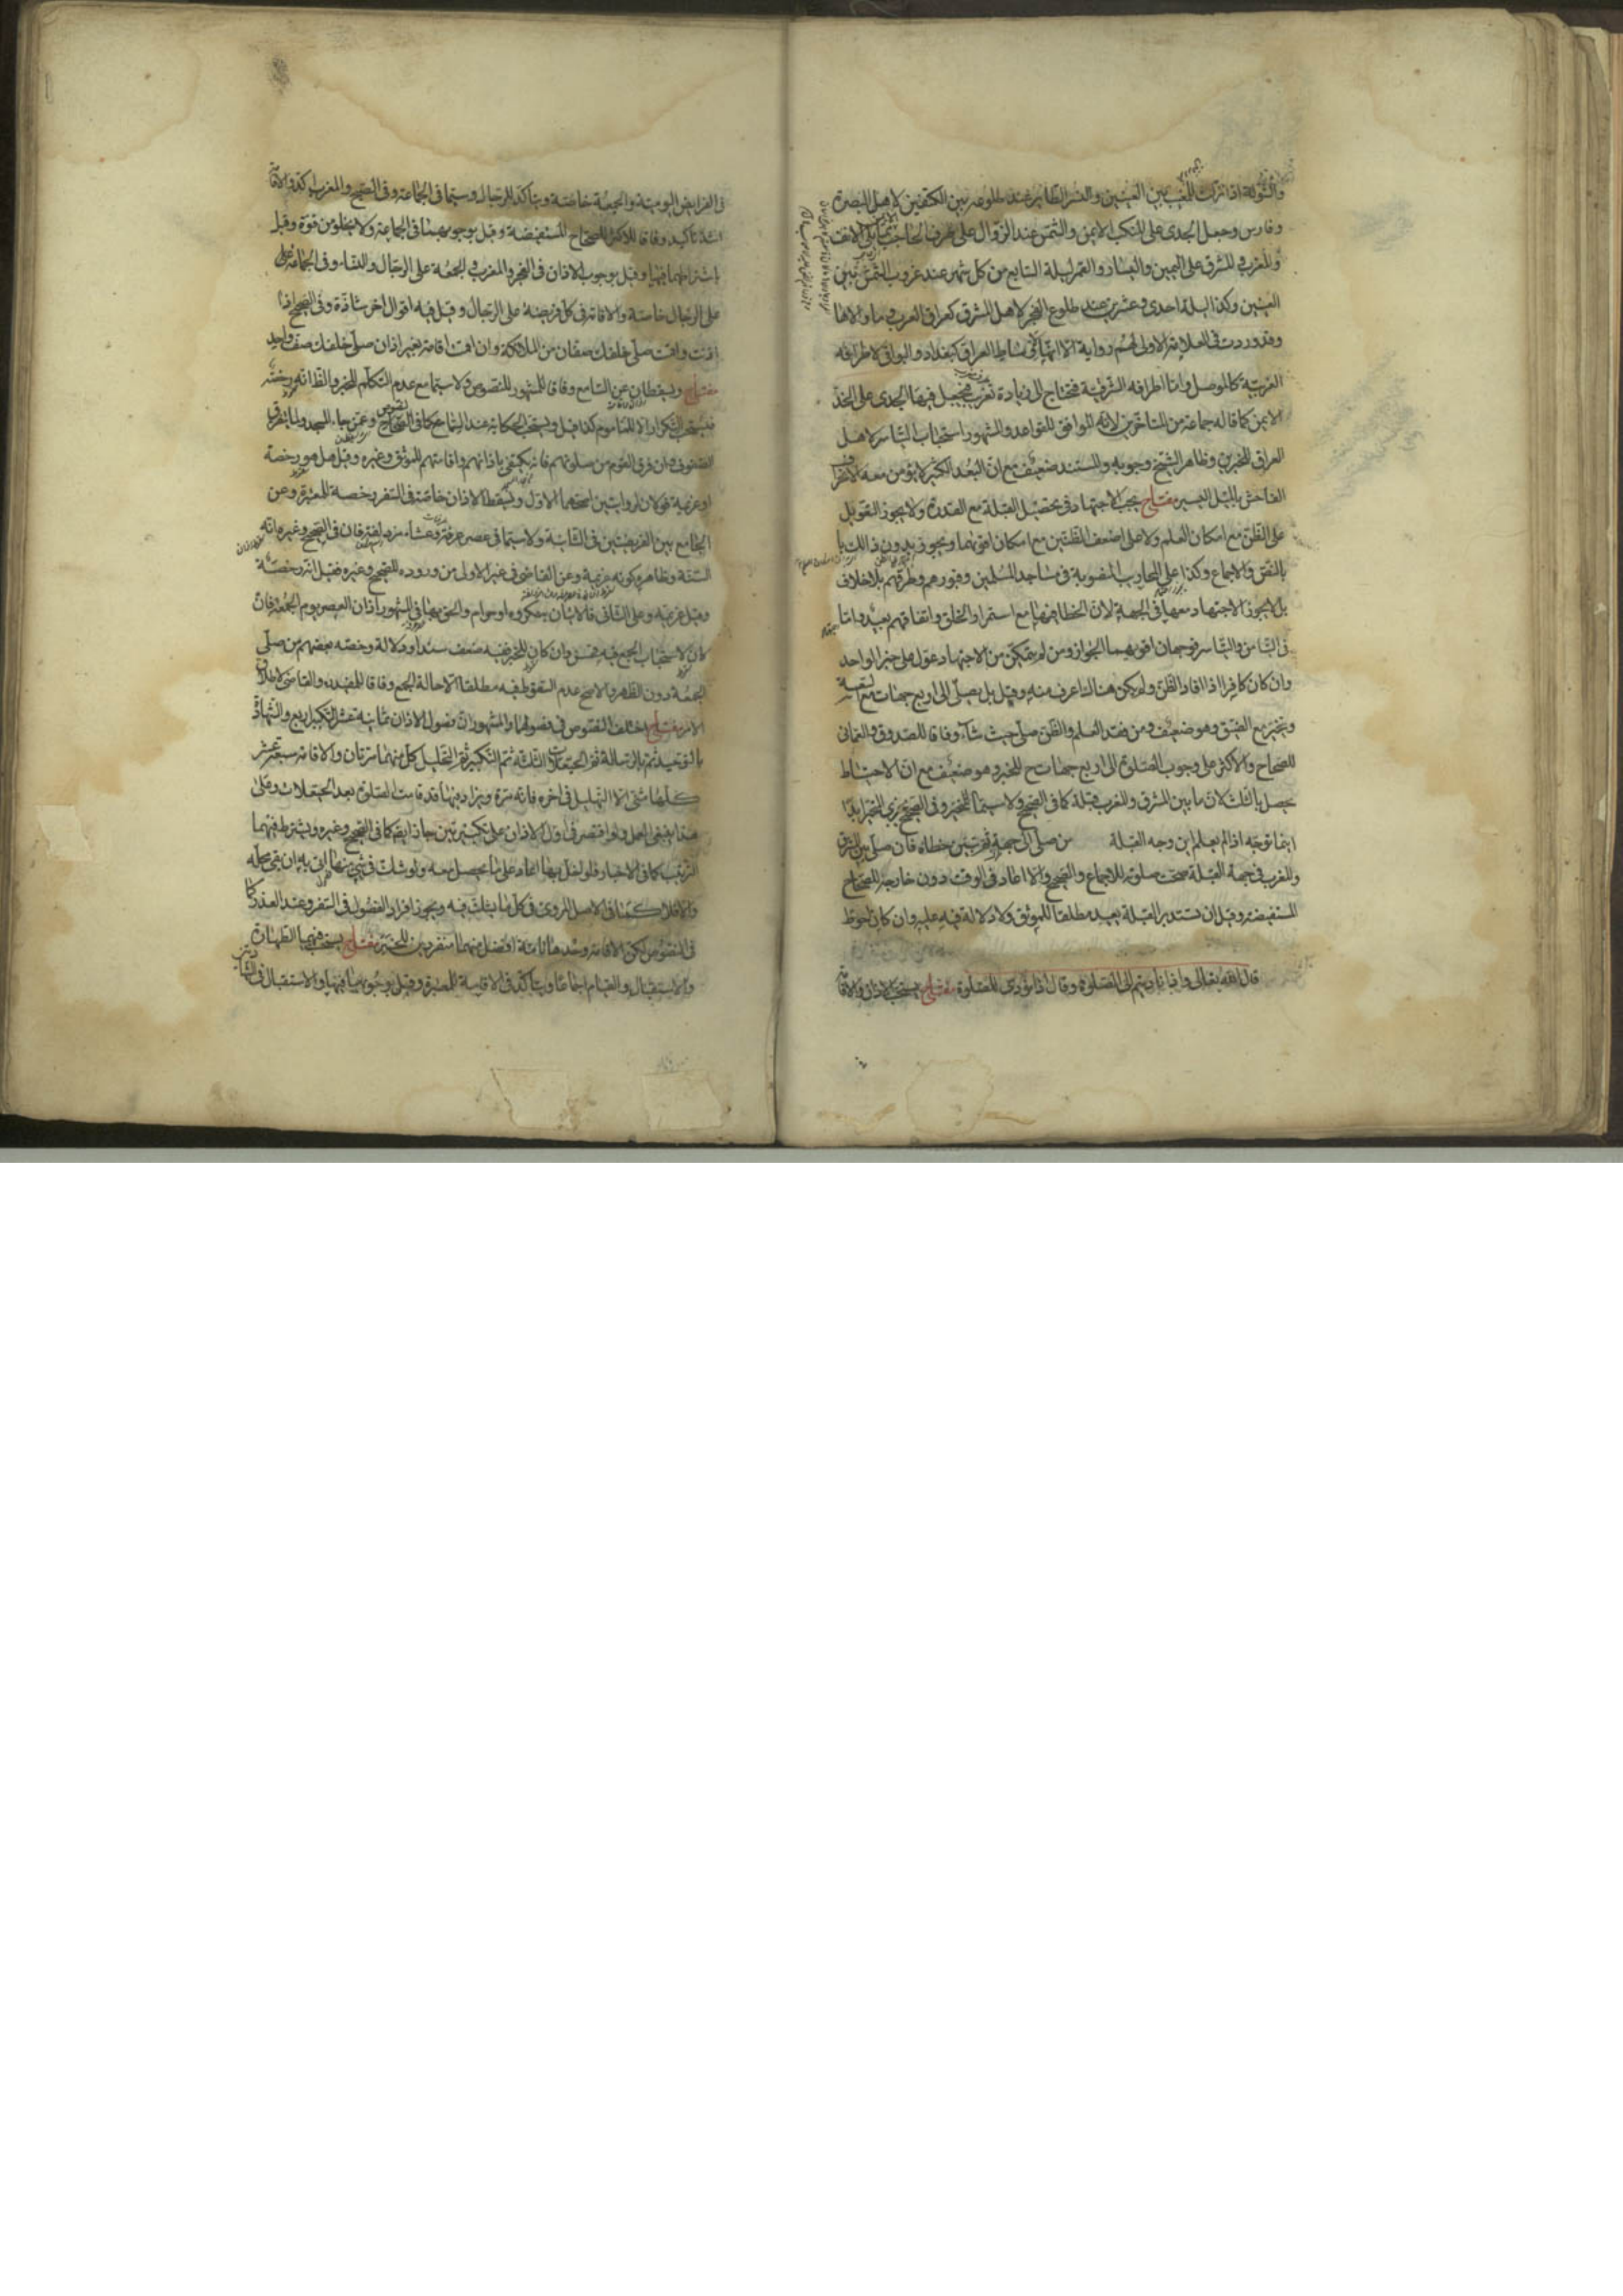 والشولة اذا نزلت للمغيب بين العينين والنسر الطاير عند طلوعه بين الكتفين لاهل البصرة
وفارس وجعل الجدى على المنكب الايمن والشمس عند الزوال على طرف الحاجب مما يلى الانف
والمغرب والمشرق على اليمين واليسار والقمر ليلة السابع من كل شهر عند غروب الشمس بين
العينين وكذا ليلة احدى وعشرين عند طلوع الفجر لاهل المشرق كعراق العرب وما والاها
وقد وردت فى العلامة الاولى لهم رواية الا انها فى اوساط العراق كبغداد والبواقى لاطرافه
الغربية كالموصل واما اطرافه الشرقية فتحتاج الى زيادة تغرب فيجعل فيها الجدى على الخد
الايمن كما قاله جماعة من المتاخرين لانه الموافق للقواعد والمشهور استحباب التياسر لاهل
العراق للخبرين وظاهر الشيخ وجوبه والمستند ضعيف مع ان البعد الكثير لا يؤمن معه الانحراف
الفاحش بالميل اليسير مفتاح يجب الاجتهاد فى تحصيل القبلة مع القدرة ولا يجوز التعويل
على الظن مع امكان العلم ولا على اضعف الظنين مع امكان اقويهما ويجوز بدون ذالك
بالنص والاجماع وكذا على المحاريب المنصوبة فى مساجد المسلمين وقبورهم وطرقهم بلا خلاف
بل لا يجوز الاجتهاد معها فى الجهة لان الخطا فيها مع استمرار الخلق واتفاقهم بعيد واما
فى التيامن والتياسر فوجهان اقويهما الجواز ومن لم يتمكن من الاجتهاد عول على خبر الواحد
وان كان كافرا اذا افاد الظن ولم يكن هناك اعرف منه وقيل بل يصلى الى اربع جهات مع السعة
ويتخير مع الضيق وهو ضعيف ومن فقد العلم والظن صلى حيث شاء وفاقا للصدوق والعمانى
للصحاح والاكثر على وجوب الصلوة الى اربع جهات للخبر وهو ضعيف مع ان الاحتياط
يحصل بالثلث لان ما بين المشرق والمغرب قبلة كما فى الصحيح ولا سيما للمتحير وفى الصحيح يجزى المتحير ابدا
اينما توجه اذا لم يعلم اين وجه القبلة من صلى الى جهة ثم تبين خطاه فان صلى بين المشرق
والمغرب فى جهة القبلة صحت صلوته للاجماع والصحيح والا اعاد فى الوقت دون خارجه للصحاح
المستفيضة وقيل ان استدبر القبلة يعيد مطلقا للموثق ولا دلالة فيه عليه وان كان احوط
قال الله تعالى واذا ناديتم الى الصلوة وقال اذا نودى للصلوة مفتاح يستحب الاذان والاقامة
فى الفرايض اليومية والجمعة خاصة ويتاكد للرجال وسيما فى الجماعة وفى الصبح والمغرب اكد والاقامة
اشد تاكيد وفاقا للاكثر للصحاح المستفيضة وقيل بوجوبهما فى الجماعة ولا يخلو من قوة وقيل
باشتراطهما فيها وقيل بوجوب الاذان فى الفجر والمغرب والجمعة على الرجال والنساء وفى الجماعة على
على الرجال خاصة والاقامة فى كل فريضة على الرجال وقيل فيه اقوال اخر شاذة وفى الصحيح اذا
اذنت واقمت صلى خلفك صفان من الملائكة وان اقمت اقامة بغير اذان صلى خلفك صف واحد
مفتاح ويسقطان عن السامع وفاقا للمشهور للنصوص ولا سيما مع عدم التكلم للخبر والظ انه رخصة
فيستحب التكرار الا للماموم كذا قيل ويستحب الحكاية عند السماع كما فى الصحاح وعمن جاء المسجد ولما يتفرق
الصفوف وان فرق القوم من صلوتهم فانه يكتفى باذانهم واقامتهم للموثق وغيره وقيل هل هو رخصة
او عزيمة قولان لروايتين اصحهما الاول ويسقط الاذان خاصة فى السفر رخصة للمعتبرة وعن
الجامع بين الفريضتين فى الثانية ولا سيما فى عصر عرفة وعشاء مزدلفة فان فى الصحيح وغيره انه
السنة وظاهره كونه عزيمة وعن القاضى فى غير الاول من وروده للصحيح وغيره فقيل انه رخصة
وقيل عزيمة وعلى الثانى فالاتيان به مكروه او حرام والحق بهما فى المشهور اذان العصر يوم الجمعة فان
كان لاستحباب الجمع فيه فحسن وان كان للخبر ففيه ضعف سندا ودلالة وخصه بعضهم بمن صلى
الجمعة دون الظهر والاصح عدم السقوط فيه مطلقا الا حالة الجمع وفاقا للمفيد والقاضى لاطلاق
الامر مفتاح اختلف النصوص فى فصولهما والمشهور ان فصول الاذان ثمانية عشر التكبير اربع والشهادة
بالتوحيد ثم بالرسالة ثم الحيعلات الثلثة ثم التكبير ثم التهليل كل منهما مرتان والاقامة سبعة عشر
كلها مثنى الا التهليل فى اخره فانه مرة ويزاد فيها قد قامت الصلوة بعد الحيعلات وعلى
هذا ينبغى العمل ولو اقتصر فى اول الاذان على تكبيرتين جاز ايضا كما فى الصحيح وغيره ويشترط فيهما
الترتيب كما فى الاخبار فلو اخل بها اعاد على ما يحصل معه ولو شك فى شئ منها اتى به ان بقى محله
والا فلا كما فى الاصل المروى فى كل ما يشك فيه ويجوز افراد الفصول فى السفر وعند العذر كما
فى النصوص لكن الاقامة وحدها تامة افضل منهما منفردين للخبر مفتاح يستحب فيهما الطهارة
والاستقبال والقيام اجماعا ويتاكد فى الاقامة للمعتبرة وقيل بوجوبها فيها والاستقبال فى